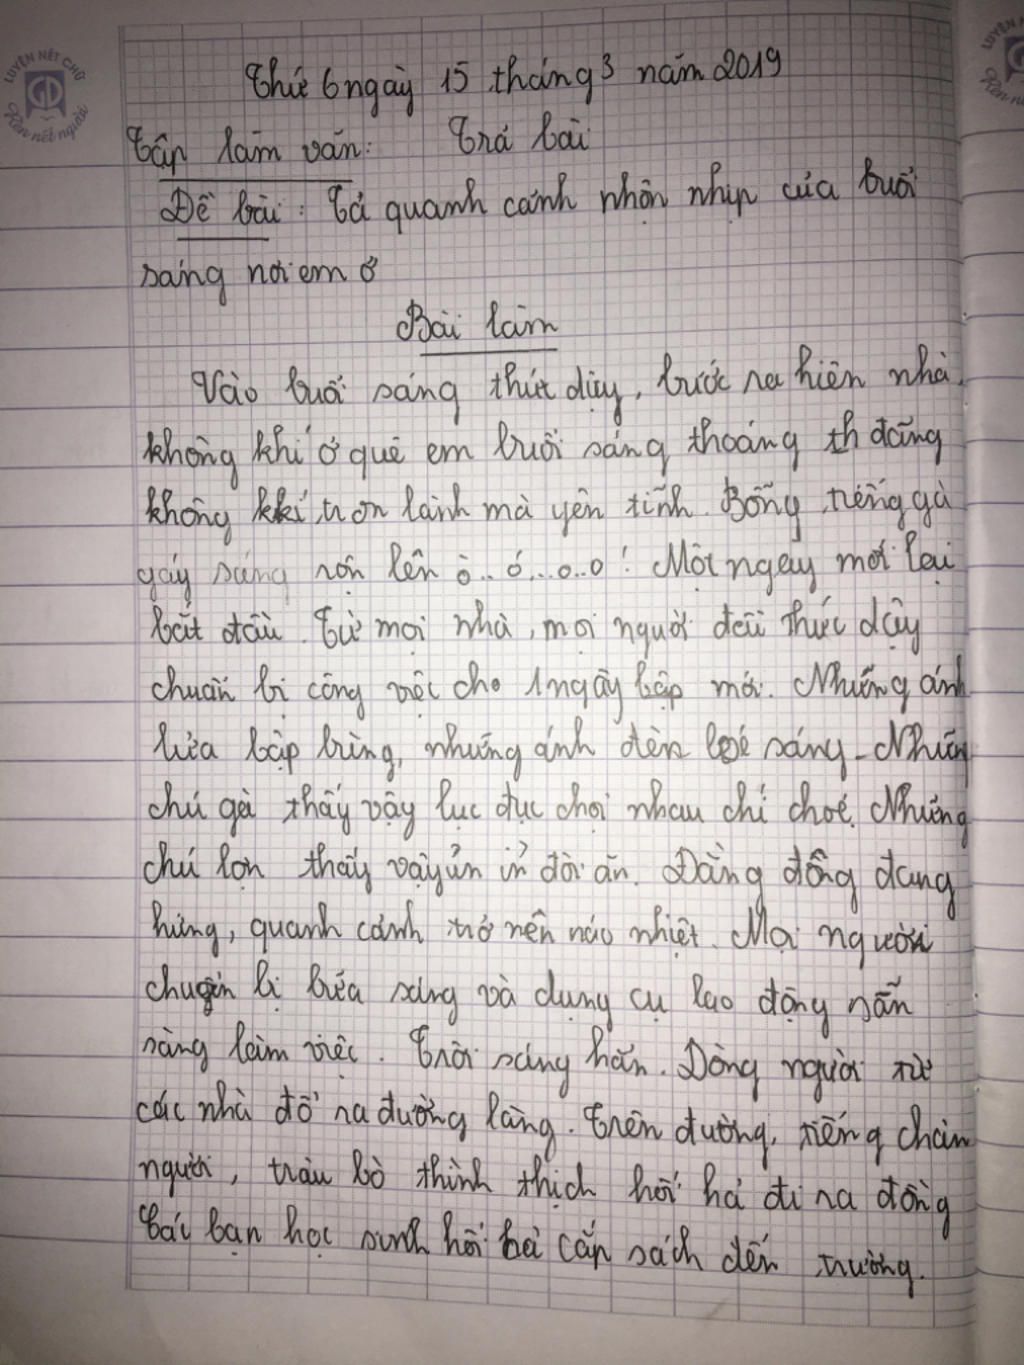 LUYỆN NÉT CHỮ
Rèn nết người
Thứ 6 ngày 15 tháng 3 năm 2019
Tập làm văn: Trả bài
Đề bài: Tả quanh cảnh nhộn nhịp của buổi
sáng nơi em ở
Bài làm
Vào buổi sáng thức dậy, bước ra hiên nhà,
không khí ở quê em buổi sáng thoáng th đãng
không khí trơn lành mà yên tĩnh. Bỗng tiếng gà
gáy sáng rộn lên ò..ó...o..o! Một ngay mới lại
bắt đầu. Từ mọi nhà, mọi người đều thức dậy
chuẩn bị công việc cho 1 ngày bập mới. Những ánh
lửa bập bùng, những ánh đèn loé sáng. Những
chú gà thấy vậy lục đục chọi nhau chí choé. Những
chú lợn thấy vậy ủn ỉn đòi ăn. Đằng đông đang
hửng, quanh cảnh trở nên náo nhiệt. Mọi người
chuẩn bị bữa sáng và dụng cụ lao động sẵn
sàng làm việc. Trời sáng hẳn. Dòng người từ
các nhà đổ ra đường làng. Trên đường, tiếng chân
người, trâu bò thình thịch hối hả đi ra đồng
Các bạn học sinh hối hả cắp sách đến trường.